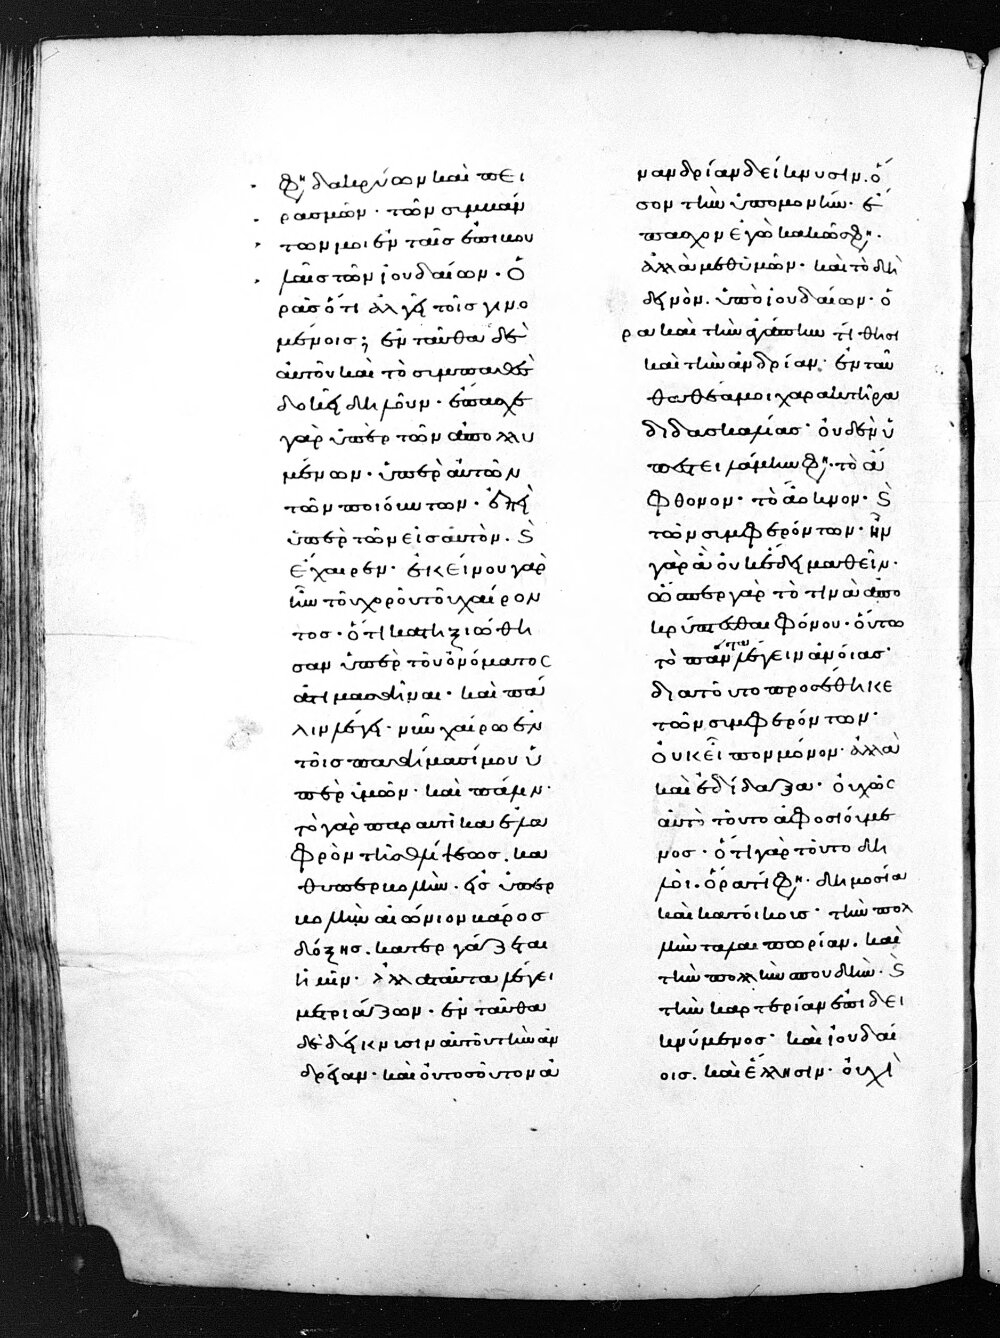 φη, δακρύων καὶ πει
ρασμῶν· τῶν συμβάν
των μοι ἐν ταῖς ἐπιβου
λαῖς τῶν ἰουδαίων· Ὁ
ρᾶς ὅτι ἀλγεῖ τοῖς γινο
μένοις; ἐνταῦθα δὲ
αὐτὸν καὶ τὸ συμπαθὲς
δοκεῖ δηλοῦν· ἔπασχε
γὰρ ὑπὲρ τῶν ἀπολλυ
μένων· ὑπὲρ αὐτῶν
τῶν ποιούντων· ἐπεὶ
ὑπὲρ τῶν εἰς αὐτὸν· καὶ
ἔχαιρεν· ἐκείνου γὰρ
ἦν τοῦ χοροῦ τοῦ χαίρον
τος· ὅτι κατηξιώθη
σαν ὑπὲρ τοῦ ὀνόματος
ἀτιμασθῆναι· καὶ πά
λιν λέγει· νῦν χαίρω ἐν
τοῖς παθήμασί μου ὑ
πὲρ ὑμῶν· καὶ πάλιν·
τὸ γὰρ παραυτίκα ἐλα
φρὸν τῆς θλίψεως· κα
θ ὑπερβολὴν εἰς ὑπερ
βολὴν αἰώνιον βάρος
δόξης· κατεργάζεται
ἡμῖν· Ἀλλὰ ταῦτα λέγει
μετριάζων· ἐνταῦθα
δὲ δείκνυσιν αὐτοῦ τὴν ἀν
δρείαν· καὶ οὐ τοσοῦτον ἀ
ναν δρίαν δείκνυσιν· ὅ
σον τὴν ὑπομονήν· ἔ
πασχον ἐγὼ κακῶς φη,·
ἀλλὰ μεθ ὑμῶν· καὶ τὸ δὴ
δεινὸν· ὑπὸ ἰουδαίων· ὅ
ρα καὶ τὴν ἀγάπην τίθησι
καὶ τὴν ἀνδρίαν· ἐνταῦ
θα θέα μοι χαρακτῆρα
διδασκαλίας· οὐδὲν ὑ
πεστειλάμην φη,· τὸ ἄ
φθονον· τὸ ἄοκνον· καὶ
τῶν συμφερόντων· ἦν
γὰρ ἃ οὐκ ἔδει μαθεῖν·
ὥσπερ γὰρ τὸ τινὰ ἀπο
κρύπτεσθαι φθόνου· οὕτω
τὸ πάντα λέγειν ἀνοίας·
διὰ τοῦτο προσέθηκε
τῶν συμφερόντων·
οὐκ εἶπον μόνον· ἀλλὰ
καὶ ἐδίδαξα· οὐχ ὡς
αὐτὸ τοῦτο ἀφοσιούμε
νος· ὅτι γὰρ τοῦτο δη
λοῖ· ὅρα τί φη,· δημοσία
καὶ κατοίκους· τὴν πολ
λὴν ταλαιπωρίαν· καὶ
τὴν πολλὴν σπουδὴν· καὶ
τὴν καρτερίαν ἐπιδει
κνύμενος· καὶ ἰουδαί
οις· καὶ Ἕλλησιν· οὐχὶ